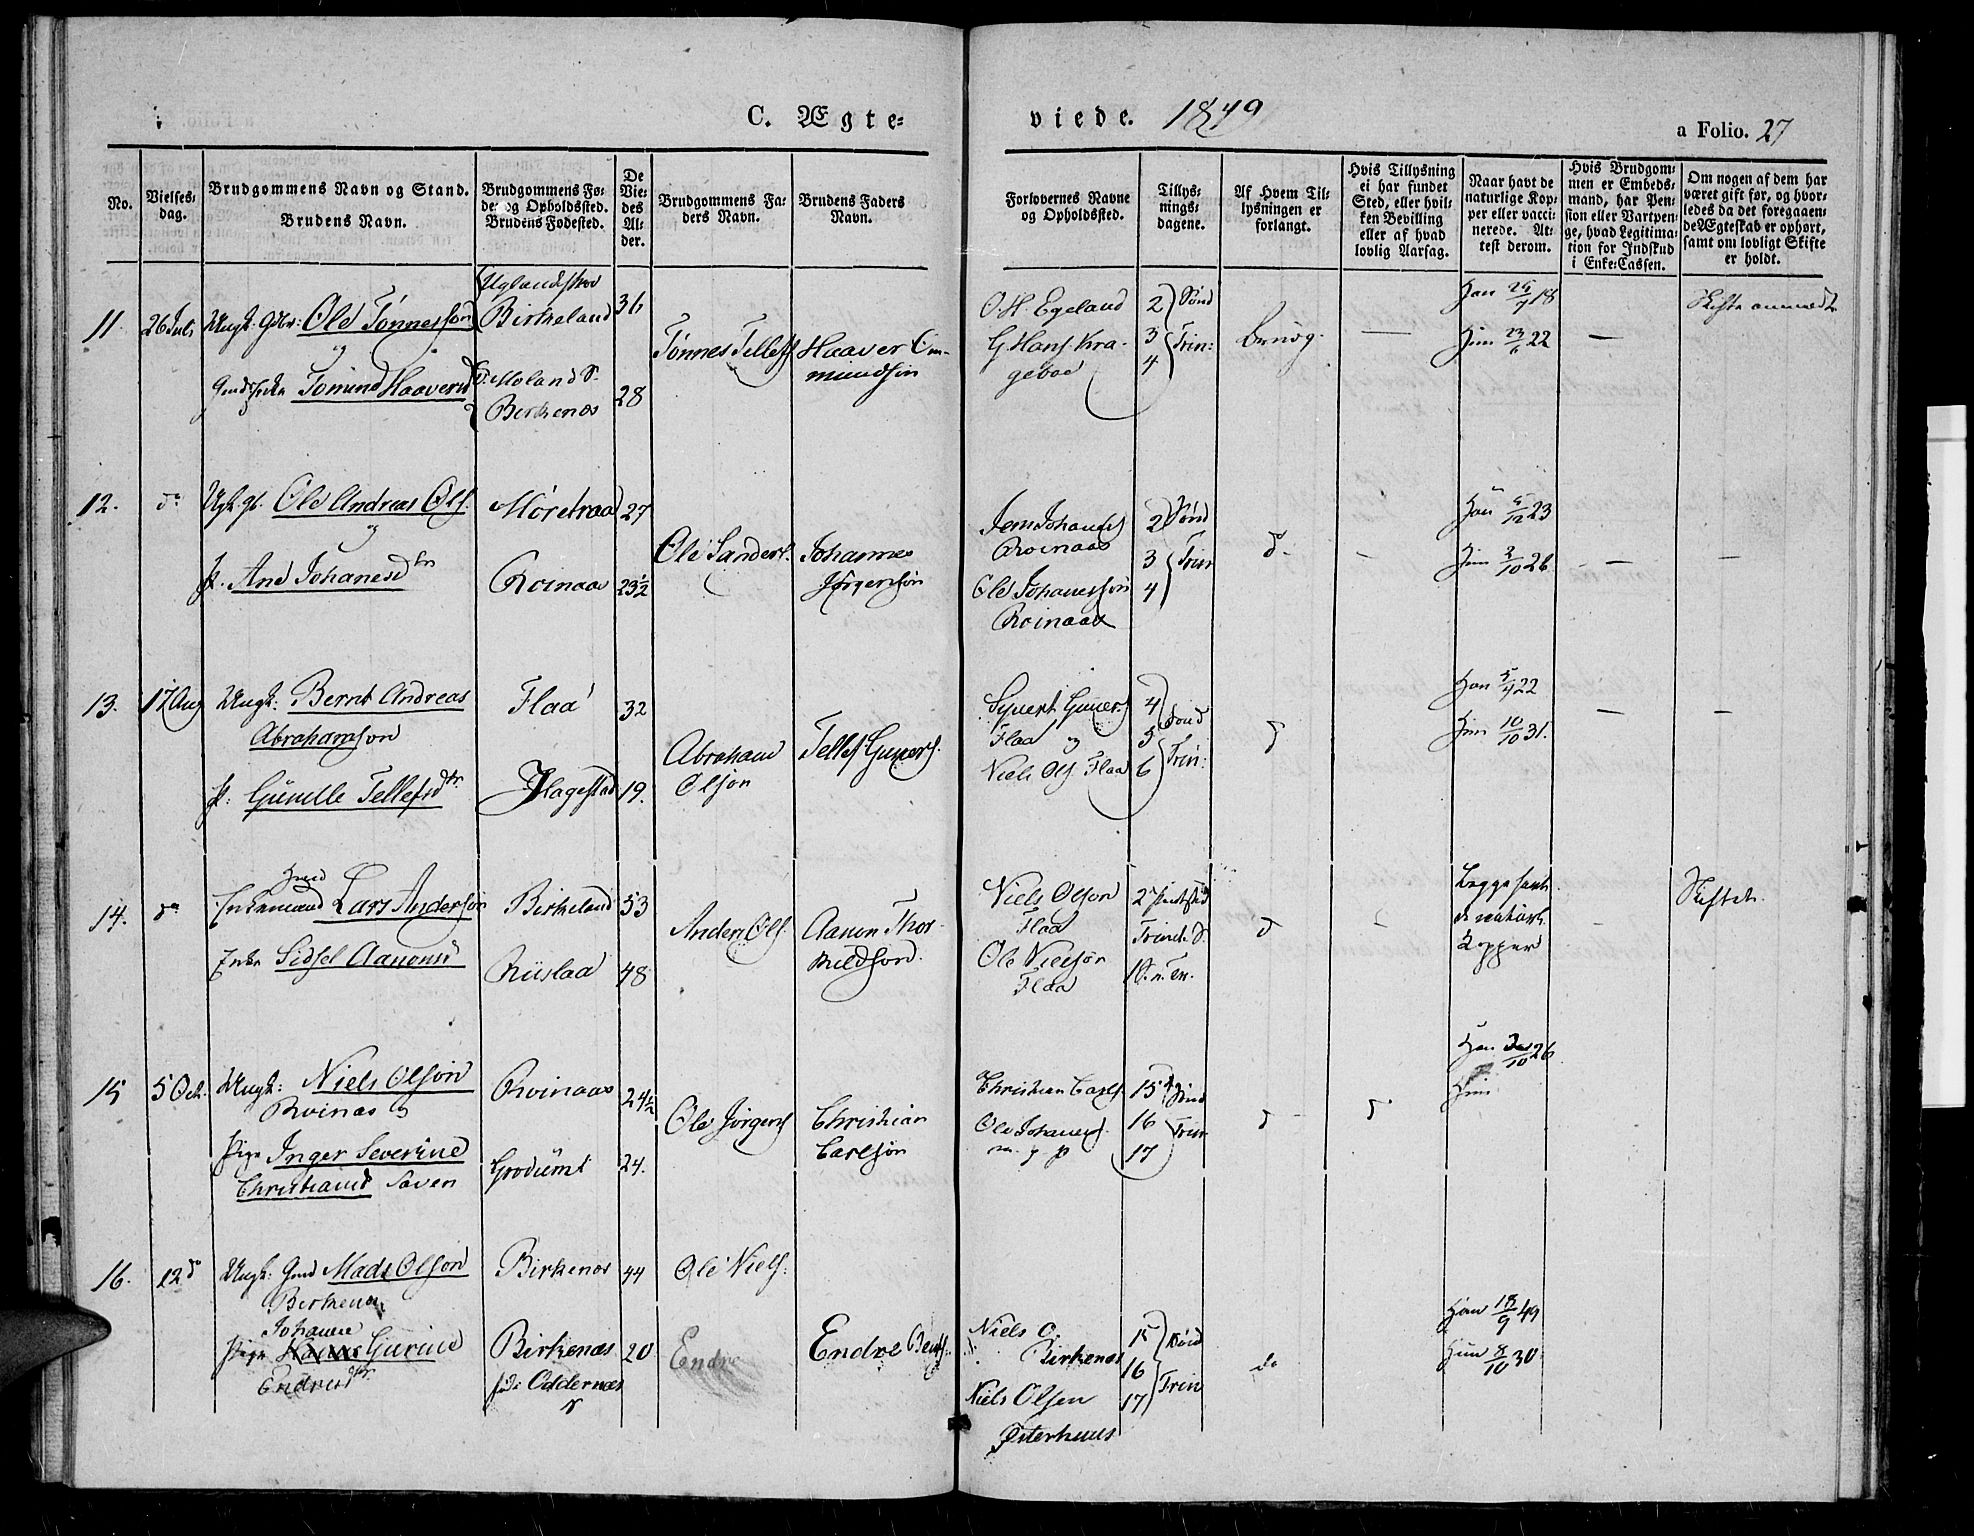 C. Ægte-
viede. 1849
a Folio. 27
No.
Vielses-
dag.
Brudgommens Navn og Stand.
Brudens Navn.
Brudgommens Fø-
de- og Opholdssted.
Brudens Fødested.
De
Vie-
des
Al-
der.
Brudgommens Fa-
ders Navn.
Brudens Faders
Navn.
Forlovernes Navne
og Opholdssted.
Tillys-
nings-
dagene.
Af Hvem Til-
lysningen er
forlangt.
Hvis Tillysning
ei har fundet
Sted, eller hvil-
ken Bevilling
eller af hvad
lovlig Aarsag.
Naar havt de
naturlige Kop-
per eller vacci-
nerede. At-
test derom.
Hvis Brudgom-
men er Embeds-
mand, har Pen-
sion eller Vartpen-
ge, hvad Legitima-
tion for Indskud
i Enke-Cassen.
Om nogen af dem har
været gift før, og hvor-
ledes da det foregaaen-
de Ægteskab er ophørt,
samt om lovligt Skifte
er holdt.
11
26 Juli
Ungk. Gdbr: Ole Tønnesson
og
Birkeland
Moland S.
Birkenæs
36
28
Tønnes Tellefs
Haaver Om-
mundsøn
O. H. Egeland
G. Hans. Kra-
geboe
2 Sønd
3 Trin:
4
Brudg.
—
Han 7 18
Hun 23/6 22
—
12.
do
Ungk. Ole Andreas Ols.
og
P. Ane Johanesdtr
Møretraa
Roinaas
27
23½
Ole Sanders.
Johannes
Jørgensøn
Johans
Roinaas
Ole Johanessøn
Roinaas
2 Sønd
3 Trin
4
d-
-
Han 5/12 23
Hun 3/10 26
-
-
13.
17 Aug
Ungk: Bernt Andreas
Abrahamson
P: Gunelle Tellefsdtr
Flaa
Flagestad
32
19.
Abraham
Olson
Tellef Guners.
Syvert Guners
Flaa og
Niels Ols. Flaa
4 Sønd
5 Trin:
6
d
Han 5/4 22
Hun 10/10 31.
-
-
14.
do
Enkemand Lars Anderson
Enke Sidsel Aanonsd
Birkeland
Riislaa
53
48
Anders Ols.
Aanon Thor-
kildson.
Niels Olson
Flaa
Ole Nielsøn
Flaa
2
Trinit. S.
1 S. e. Trin.
d
-
Begge havt
de naturl.
Kopper
-
Skiftet.
15
5 Oct.
Ungk: Niels Olson
Roinas og
Pige Inger Severine
Christiansd Saven
Roinaas
24½
24.
Ole Jørgens
Christian
Carlsøn
Christian Carls.
Ole Johanes.
15 Sønd
16 Trin
17
d
d
Han 3/10 26
Hun
16.
12 do
Ungk: Gmd Mads Olson
Birkenæs
Johanne
Pige Gurine
Endresdtr
Birkenæs
Birkenæs
føde Oddernæs
44
20
Ole Niels.
Endre
Endre Bents.
Niels O.
Birkenæs
Niels Olsen
Østerhuus
15 Sønd
16 Trin
17
do
Han 18/9 49
Hun 8/10 30